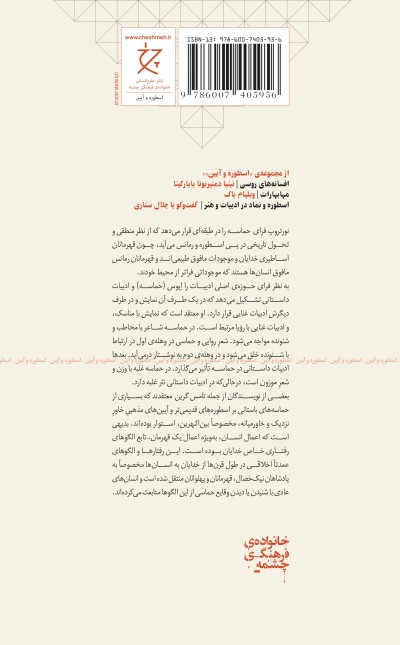 www.cheshmeh.ir
نشر چشمه
خانواده‌ی فرهنگی چشمه
اسطوره و آیین
ISBN-13: 978-600-7405-95-6
9 786007 405956
از مجموعه‌ی «اسطوره و آیین»:
افسانه‌های روسی |
مهابهارات | ویلیام باک
اسطوره و نماد در ادبیات و هنر | گفت‌وگو با جلال ستاری
نورتروپ فرای حماسه را در طبقه‌ای قرار می‌دهد که از نظر منطقی و
تحول تاریخی در پی اسطوره و رمانس می‌آید، چون قهرمانان
اساطیری خدایان و موجودات مافوق طبیعی‌اند و قهرمانان رمانس
مافوق انسان‌ها هستند که موجوداتی فراتر از محیط خودند.
به نظر فرای حوزه‌ی اصلی ادبیات را اپوس (حماسه) و ادبیات
داستانی تشکیل می‌دهد که در یک طرف آن نمایش و در طرف
دیگرش ادبیات غنایی قرار دارد. او معتقد است که نمایش با مناسک،
و ادبیات غنایی با رؤیا مرتبط است. در حماسه شاعر با مخاطب و
شنونده مواجه می‌شود. شعر روایی و حماسی در وهله‌ی اول در ارتباط
با شنونده خلق می‌شود و در وهله‌ی دوم به نوشتار درمی‌آید. بعدها
ادبیات داستانی در حماسه تأثیر می‌گذارد. در حماسه غلبه با وزن و
شعر موزون است، درحالی‌که در ادبیات داستانی نثر غلبه دارد.
بعضی از نویسندگان از جمله تامس گرین معتقدند که بسیاری از
حماسه‌های باستانی بر اسطوره‌های قدیمی‌تر و آیین‌های مذهبی خاور
نزدیک و خاورمیانه، مخصوصاً بین‌النهرین، استوار بوده‌اند. بدیهی
است که اعمال انسان، به‌ویژه اعمال یک قهرمان، تابع الگوهای
رفتاری خاص خدایان بوده است. این رفتارها و الگوهای
عمدتاً اخلاقی در طول قرن‌ها از خدایان به انسان‌ها مخصوصاً به
پادشاهان نیک‌خصال، قهرمانان و پهلوانان منتقل شده است و انسان‌های
عادی با شنیدن یا دیدن وقایع حماسی از این الگوها متابعت می‌کرده‌اند.
خانواده‌ی
فرهنگی
چشمه